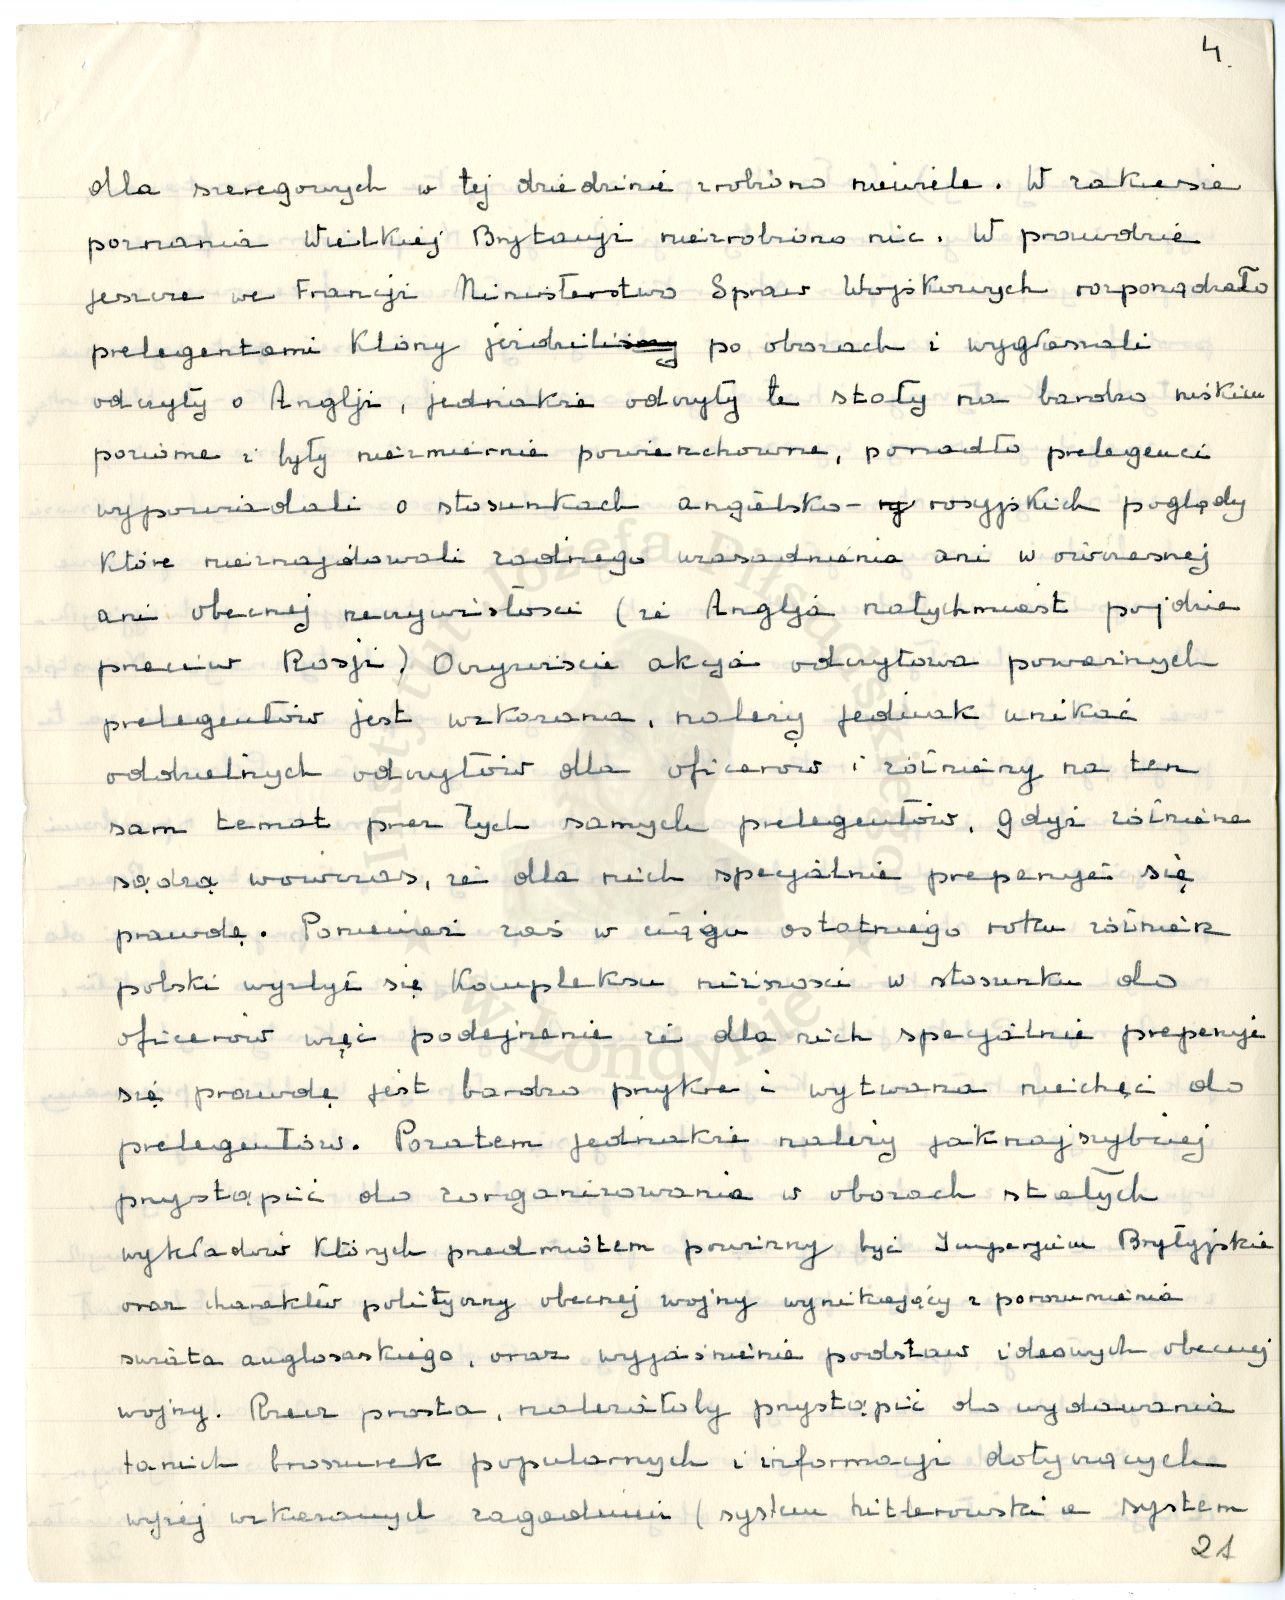 4.
dla szeregowych w tej dziedzinie zrobiono niewiele. W zakresie
poznania Wielkiej Brytanji niezrobiono nic. W prawdzie
jeszcze we Francji Ministerstwo Spraw Wojskowych rozporządzało
prelegentami którzy jeździli po obozach i wygłaszali
odczyty o Anglji, jednakże odczyty te stały na bardzo niskim
poziomie i były niezmiernie powierzchowne, ponadto prelegenci
wypowiadali o stosunkach angielsko- rosyjskich poglądy
które nieznajdowali żadnego uzasadnienia ani w ówczesnej
ani obecnej rzeczywistości (że Anglja natychmiast pójdzie
przeciw Rosji) Oczywiście akcja odczytowa poważnych
prelegentów jest wskazana, należy jednak unikać
oddzielnych odczytów dla oficerów i żołnierzy na ten
sam temat przez tych samych prelegentów, gdyż żołnierze
sądzą wówczas, że dla nich specjalnie preparuje się
prawdę. Ponieważ zaś w ciągu ostatniego roku żołnierz
polski wyzbył się kompleksu niższości w stosunku do
oficerów więc podejrzenie że dla nich specjalnie preperuje
się prawdę jest bardzo przykre i wytwarza niechęć do
prelegentów. Pozatem jednakże należy jaknajszybciej
przystąpić do zorganizowania w obozach stałych
wykładów których przedmiotem powinny być Imperjum Brytyjskie
oraz charakter polityczny obecnej wojny wynikający z porozumienia
świata anglosaskiego, oraz wyjaśnienie podstaw ideowych obecnej
wojny. Rzecz prosta, należałoby przystąpić do wydawania
tanich broszurek popularnych i informacji dotyczących
wyżej wskazanych zagadnień (system hitlerowski a system
21
Instytut Józefa Piłsudskiego
w Londynie